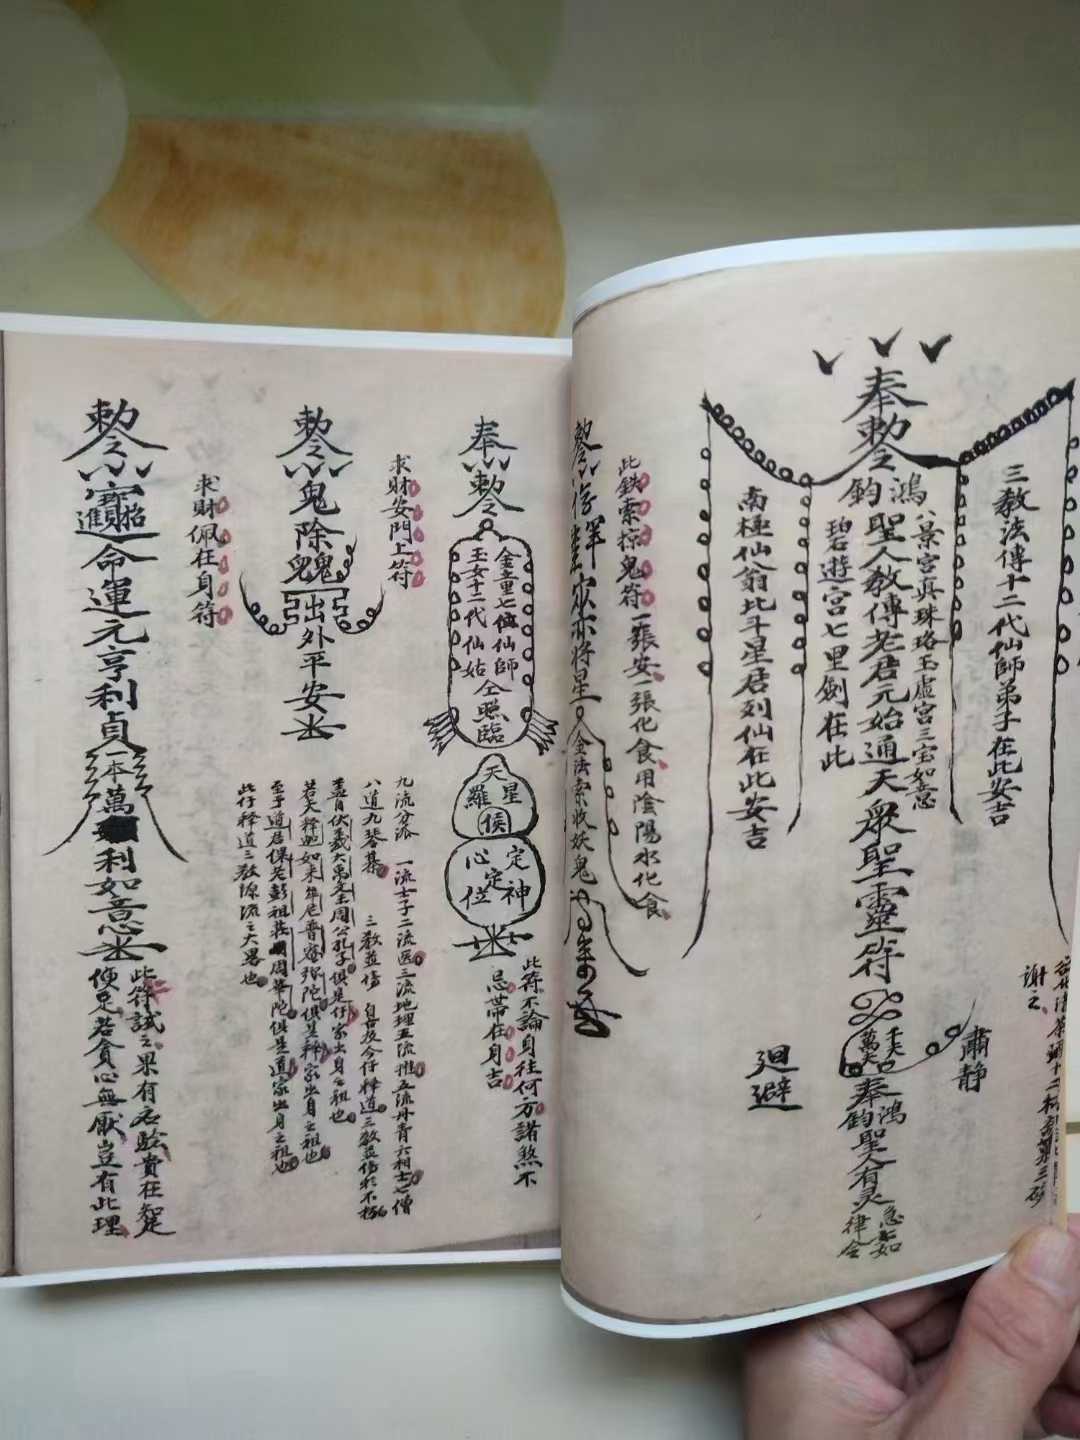 謝之
三教法傳十二代仙師弟子在此安吉
肅静
奉勅令
鴻鈞聖人教傳老君元始通天眾聖靈符
八景宮真珠珞玉虚宮三宝如意
碧遊宮七里劍在此
奉鴻鈞聖人有灵
急如律令
南極仙翁北斗星居列仙在此安吉
迴避
此鉄索掠鬼符一張安一張化食用陰陽水化食
金法索收妖鬼
奉勅令
金童七位仙師
玉女十二代仙姑
仝照臨
天星羅
侯
定神
定
心位
此符不論身往何方諸煞不
忌帶在身吉
求財安門上符
勅令
鬼除
出外平安
九流分派 一流士子二流医三流地理五流推五流丹青六相士七僧
八道九琴棊 三教並傳 自古及今仔释道三教並傳於不朽
盖自伏羲大禹文王周公孔子俱是仔家出身之祖也
若夫释迦如来年尼普賢弥陀俱是释家出身之祖也
至于道居保老彭祖莊周華陀俱是道家出身之祖也
此仔释道三教源流之大畧也
求財佩在身符
勅令
招
寶
進
命運元亨利貞
一本萬
利如意
此符試之果有名驗貴在知足
便足若貪心無厭豈有此理